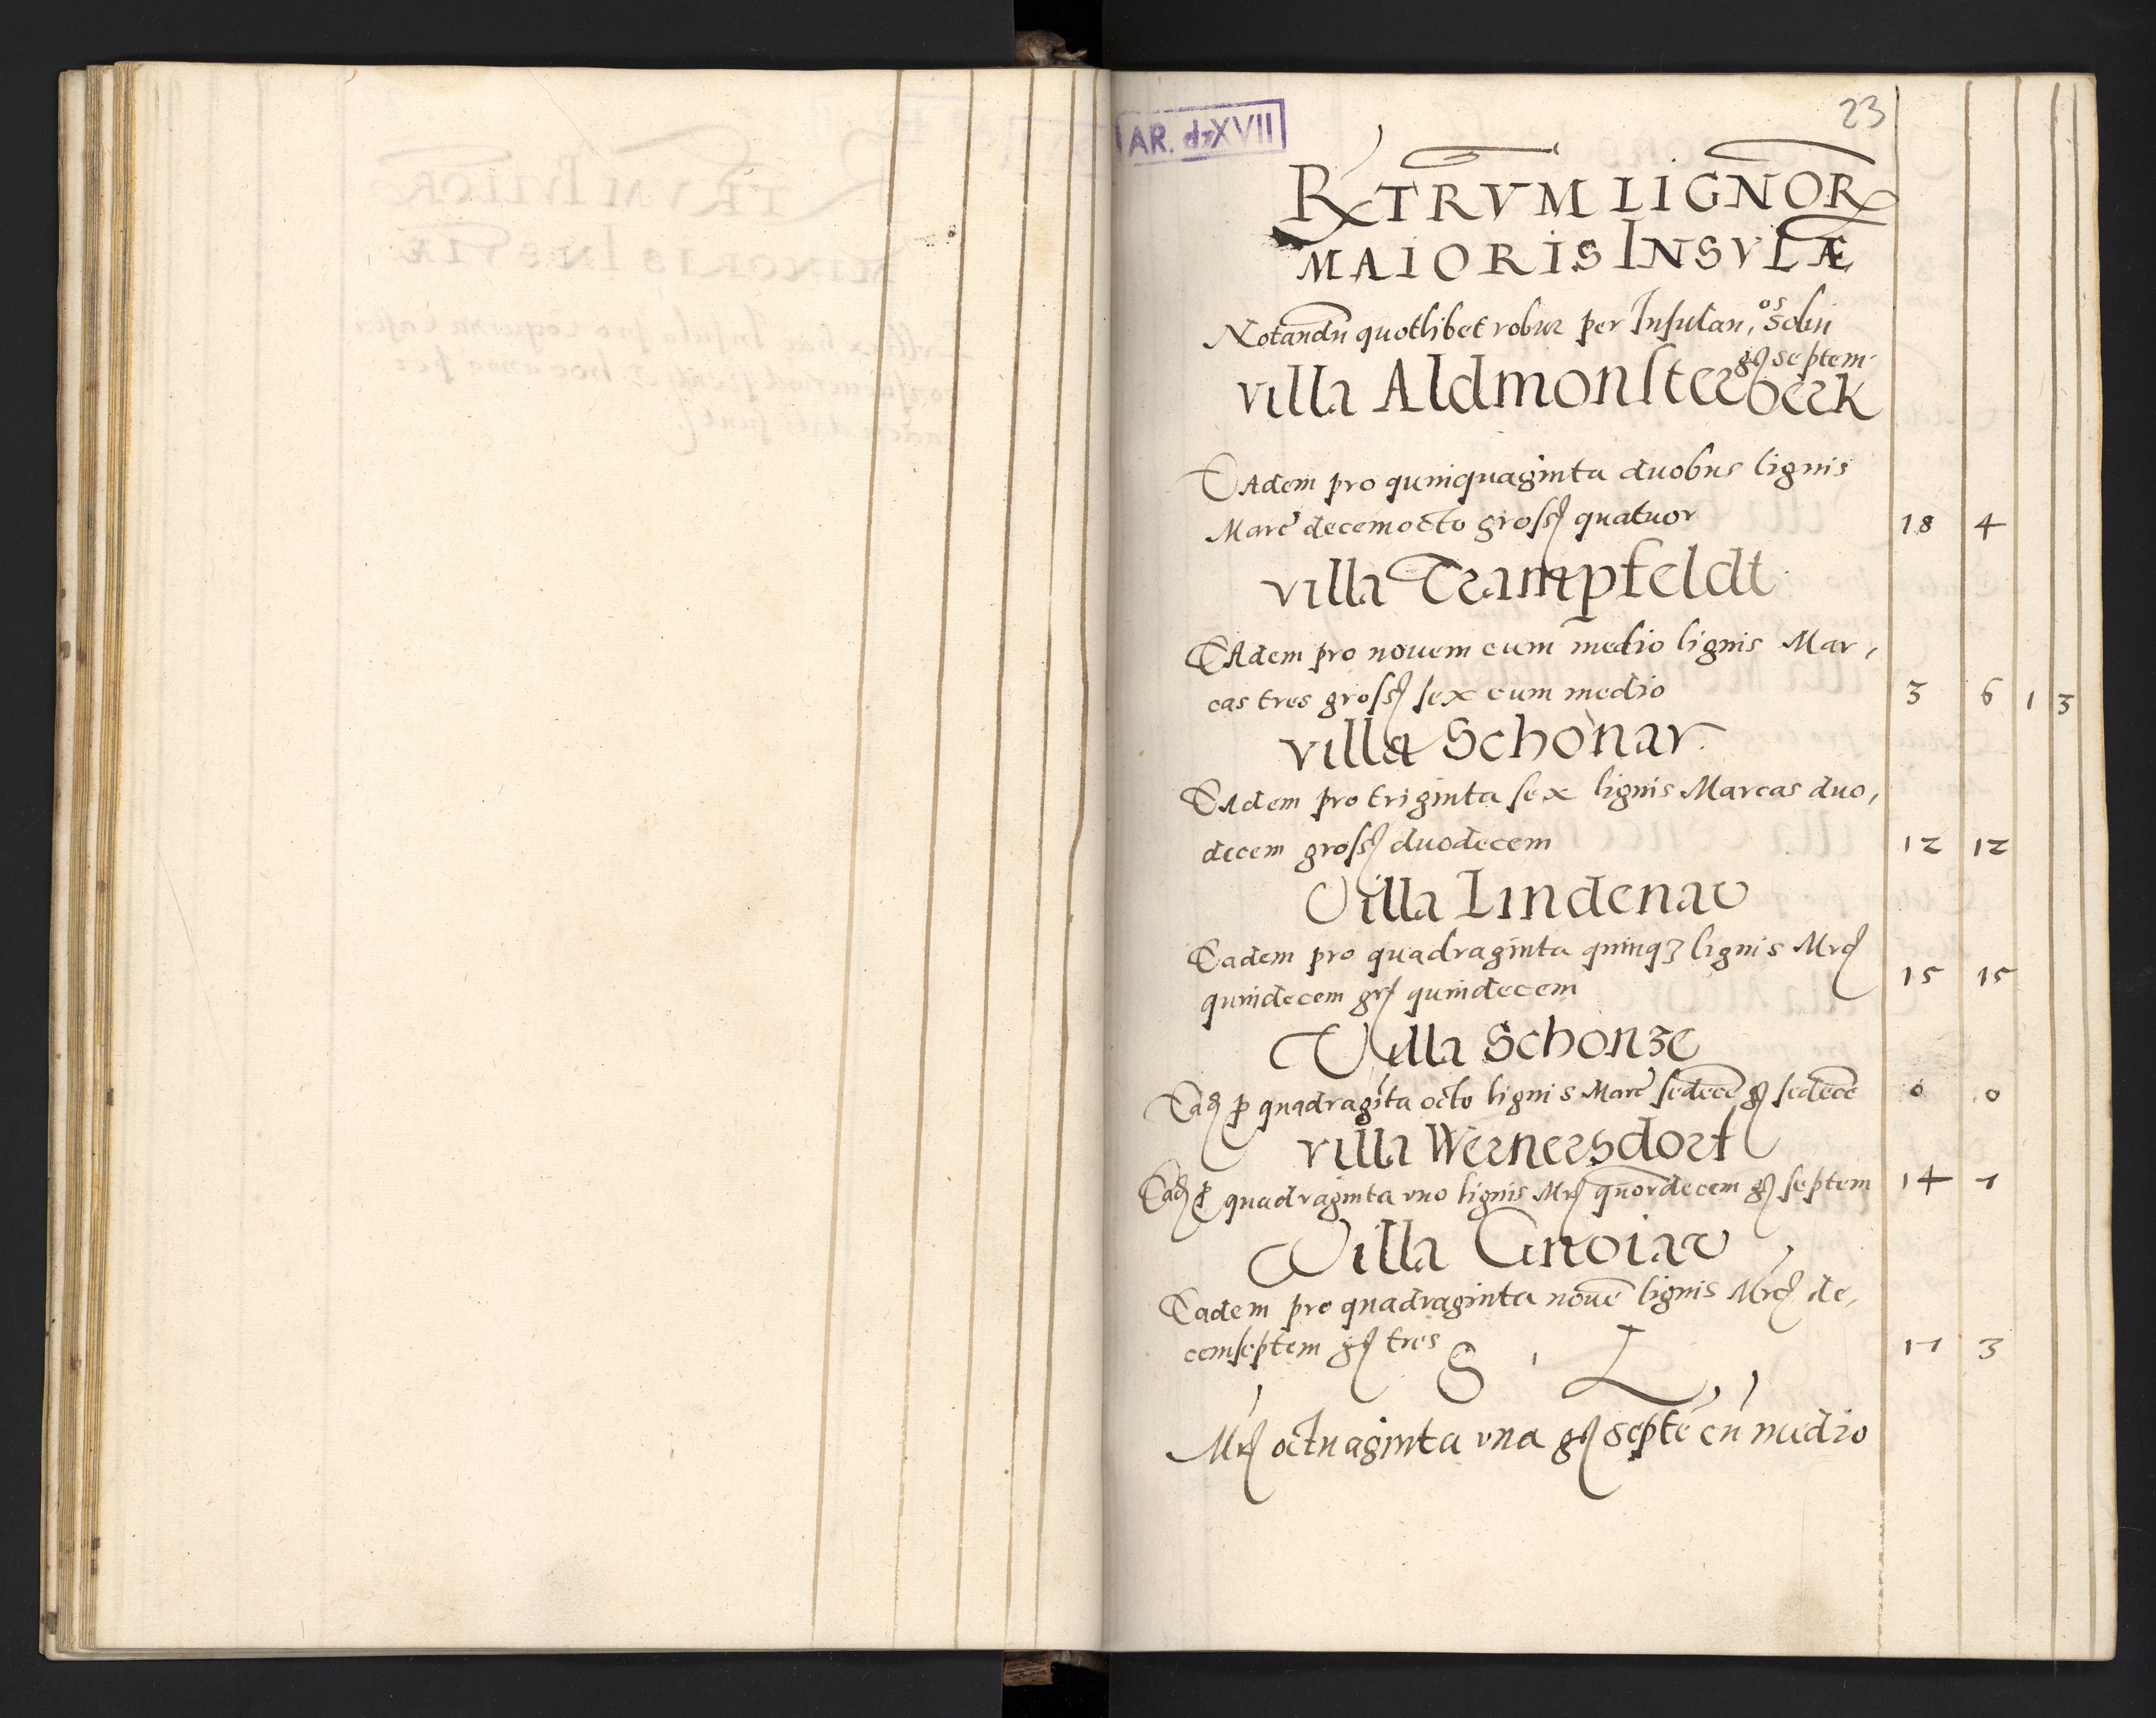 23
AR. dzXVII
RTRVM LIGNOR
MAIORIS INSVLÆ
Notandū quotlibet robur per Insulan, os solui
gſ septem
villa Aldmonsterberk
Eadem pro quinquaginta duobus lignis
Marc decemocto gross quatuor 18 4
villa Trampfeldt
Eadem pro nouem cum medio lignis Mar,
cas tres gross sex cum medio 3 6 1 3
villa Schonar
Eadem pro triginta sex lignis Marcas duo,
decem gross duodecem 12 12
Villa Lindenav
Eadem pro quadraginta quinqʒ lignis Mrc
quindecem gr quindecem 15 15
Villa Schonze
Ead p quadragīta octo lignis Marc sedecē g sedecē 0 0
villa Wernersdorf
Ead p quadraginta vno lignis Mr quordecem g septem 14 7
Villa Gnoiav
Eadem pro quadraginta nouē lignis Mrc de,
cemseptem g tres 17 3
S L
Mr octuaginta vna g septē cū medio